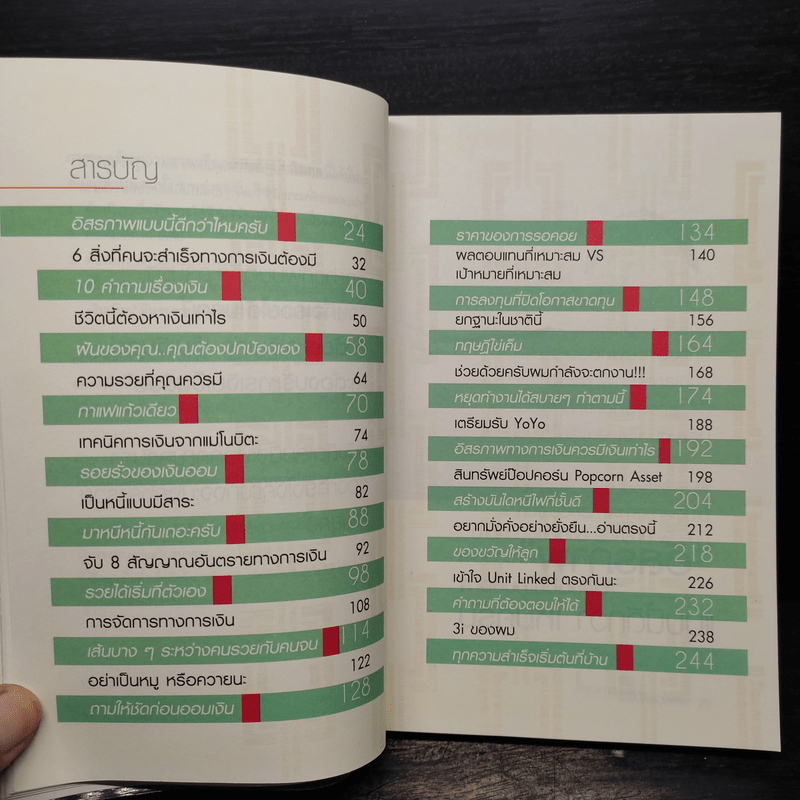 สารบัญ
อิสรภาพแบบนี้ดีกว่าไหมครับ 24
6 สิ่งที่คนจะสำเร็จทางการเงินต้องมี 32
10 คำถามเรื่องเงิน 40
ชีวิตนี้ต้องหาเงินเท่าไร 50
ฝันของคุณ..คุณต้องปกป้องเอง 58
ความรวยที่คุณควรมี 64
กาแฟแก้วเดียว 70
เทคนิคการเงินจากแม่โนบิตะ 74
รอยรั่วของเงินออม 78
เป็นหนี้แบบมีสาระ 82
มาหนีหนี้กันเถอะครับ 88
จับ 8 สัญญาณอันตรายทางการเงิน 92
รวยได้เริ่มที่ตัวเอง 98
การจัดการทางการเงิน 108
เส้นบาง ๆ ระหว่างคนรวยกับคนจน 114
อย่าเป็นหมู หรือควายนะ 122
ถามให้ชัดก่อนออมเงิน 128
ราคาของการรอคอย 134
ผลตอบแทนที่เหมาะสม VS 140
เป้าหมายที่เหมาะสม
การลงทุนที่ปิดโอกาสขาดทุน 148
ยกฐานะในชาตินี้ 156
ทฤษฎีไข่เค็ม 164
ช่วยด้วยครับผมกำลังจะตกงาน!!! 168
หยุดทำงานได้สบายๆ ทำตามนี้ 174
เตรียมรับ YoYo 188
อิสรภาพทางการเงินควรมีเงินเท่าไร 192
สินทรัพย์ป๊อปคอร์น Popcorn Asset 198
สร้างบันไดหนีไฟที่ชั้นดี 204
อยากมั่งคั่งอย่างยั่งยืน...อ่านตรงนี้ 212
ของขวัญให้ลูก 218
เข้าใจ Unit Linked ตรงกันนะ 226
คำถามที่ต้องตอบให้ได้ 232
3i ของผม 238
ทุกความสำเร็จเริ่มต้นที่บ้าน 244